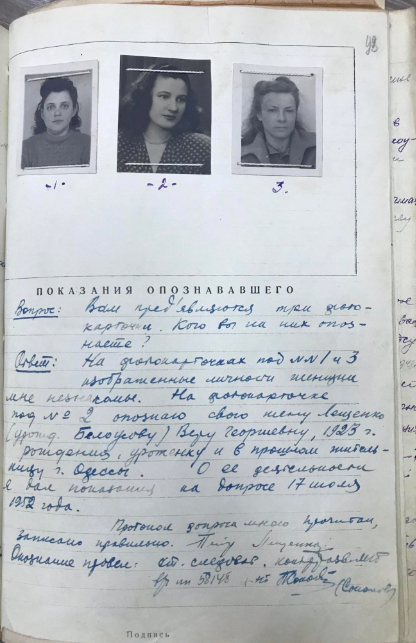 98
-1-
-2-
3.
ПОКАЗАНИЯ ОПОЗНАВАВШЕГО
Вопрос: Вам пред'являются три фото-
карточки. Кого вы на них опоз-
наете?
Ответ: На фотокарточках под №№ 1 и 3
изображенные личности женщин
мне незнакомы. На фотокарточке
под № 2 опознаю свою жену Лещенко
(урожд. Белоусову) Веру Георгиевну, 1923 г.
рождения, уроженку и в прошлом житель-
ницу г. Одессы. О ее деятельности
я дал показания на допросе 17 июля
1952 года.
Протокол допроса мною прочитан,
записано правильно. Лещенко
Опознание провел: ст. следоват. контрразведк
(Соколов)
Подпись